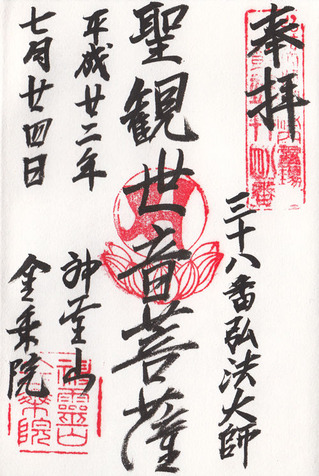 奉拝
三十八番弘法大師
聖観世音菩薩
平成廿二年
七月廿四日
神霊山
金乗院
神霊山
金乗院